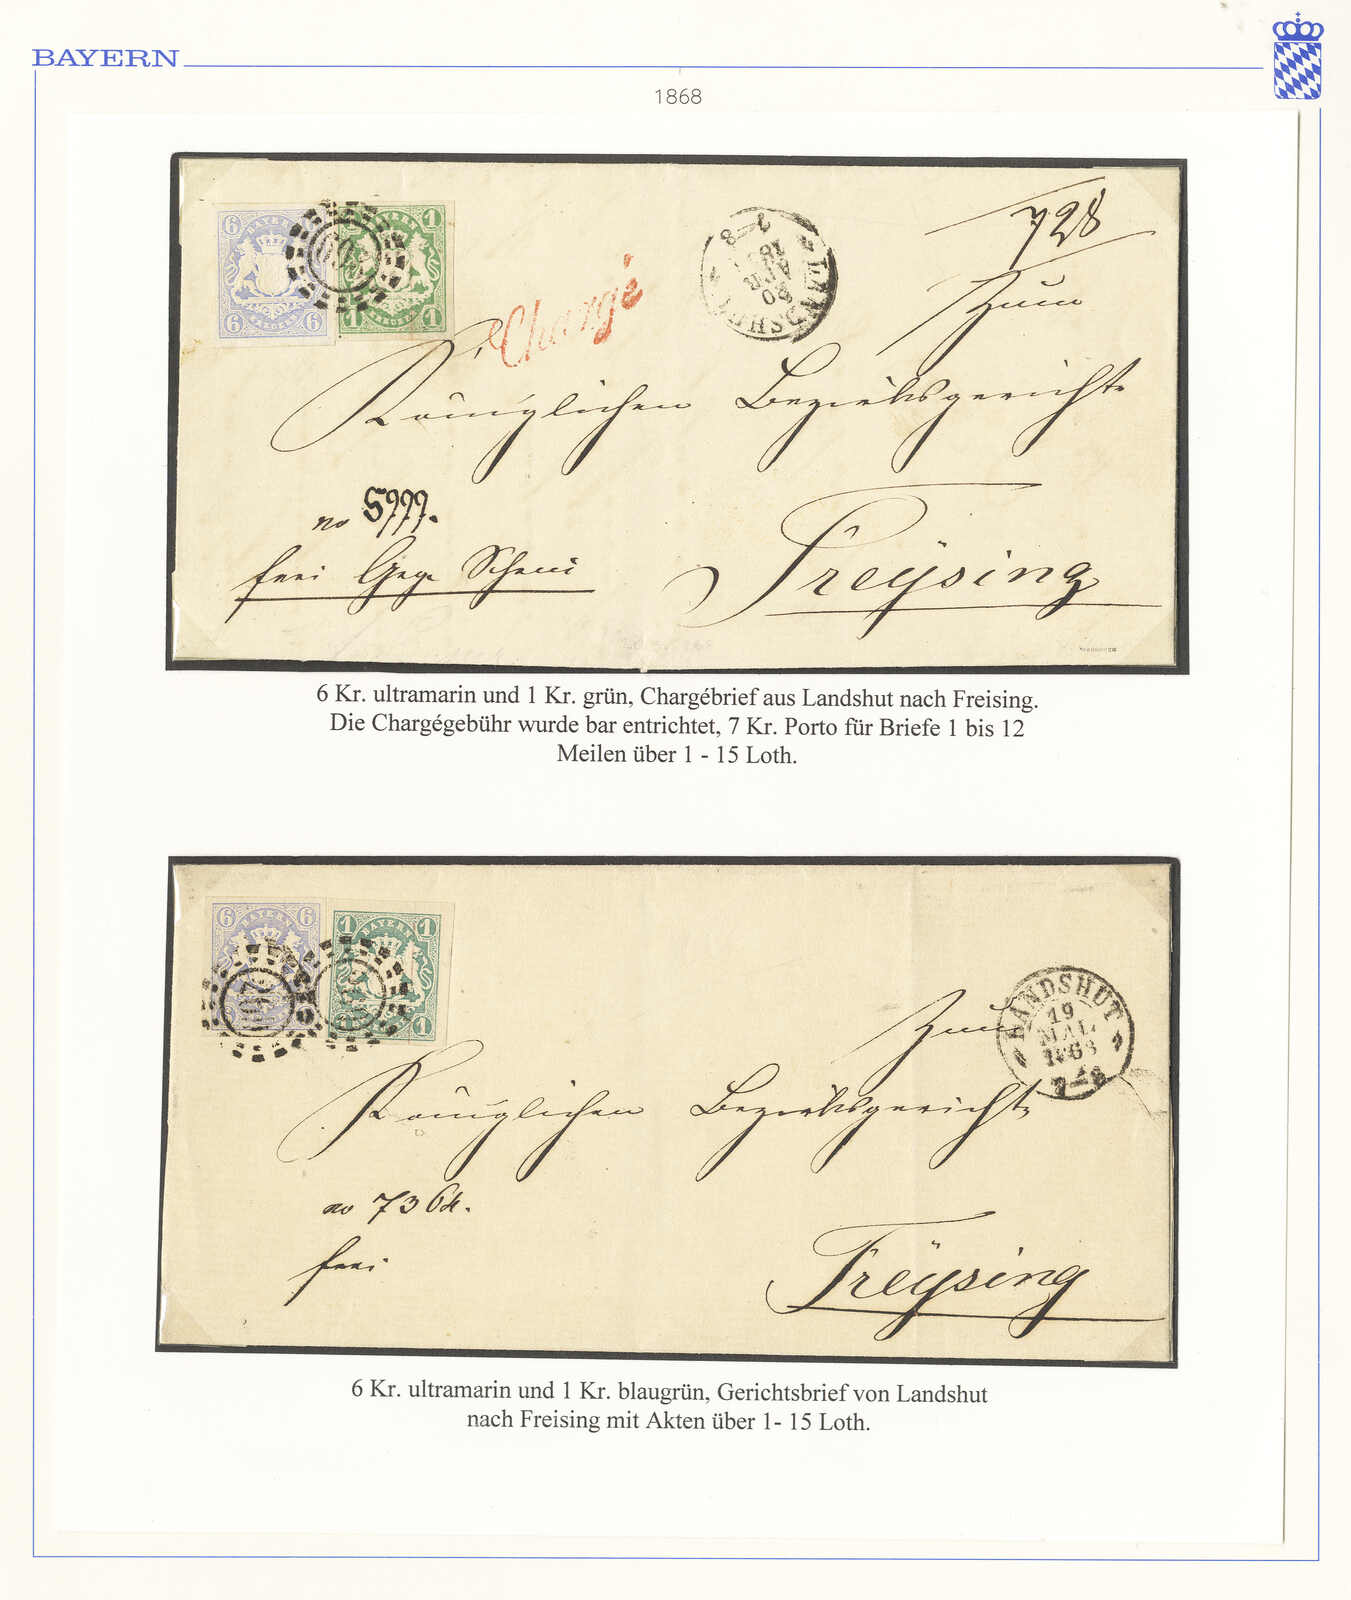 BAYERN
1868
6 BAYERN 6
6 KREUZER 6
BAYERN 1
1 KREUZER 1
Chargé
LANDSHUT
20
APR
7-8
728
Zum
Königlichen Bezirksgerichte
no 5999.
frei Gegen Schein
Freÿsing
6 Kr. ultramarin und 1 Kr. grün, Chargébrief aus Landshut nach Freising.
Die Chargégebühr wurde bar entrichtet, 7 Kr. Porto für Briefe 1 bis 12
Meilen über 1 - 15 Loth.
6 BAYERN 6
1 BAYERN
1 1
LANDSHUT
19
MAI.
1868
7-8
Zum
Königlichen Bezirksgerichte
no 7364.
frei
Freÿsing
6 Kr. ultramarin und 1 Kr. blaugrün, Gerichtsbrief von Landshut
nach Freising mit Akten über 1- 15 Loth.